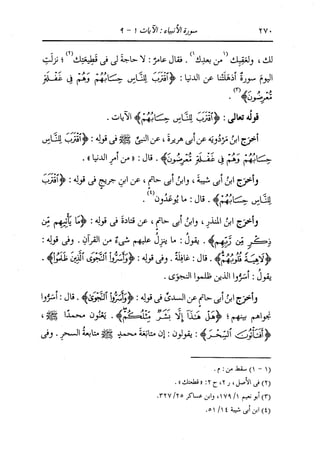 ٢٧٠ سورة الأنبياء : الآيات ١ - ٩
لك ، ولعقبِك (١من بعدِك١) . فقال عامرٌ : لا حاجةَ لى فى قطيعتِك(٢) ؛ نزلَت
اليومَ سورةٌ أذهَلَتْنا عن الدنيا : ﴿ٱقْتَرَبَ لِلنَّاسِ حِسَابُهُمْ وَهُمْ فِى غَفْلَةٍ
مُّعْرِضُونَ﴾(٣) .
قولُه تعالى : ﴿ٱقْتَرَبَ لِلنَّاسِ حِسَابُهُمْ﴾ الآيات .
أخرَج ابنُ مَرْدُويَه عن أبى هريرةَ ، عن النبىِّ ﷺ فى قولِه : ﴿ٱقْتَرَبَ لِلنَّاسِ
حِسَابُهُمْ وَهُمْ فِى غَفْلَةٍ مُّعْرِضُونَ﴾ . قال : « من أمرِ الدنيا » .
وأخرَج ابنُ أبى شيبةَ ، وابنُ أبى حاتمٍ ، عن ابنِ جريجٍ فى قولِه : ﴿ٱقْتَرَبَ
لِلنَّاسِ حِسَابُهُمْ﴾ . قال : ما يُوعَدُون(٤) .
وأخرَج ابنُ المنذرِ ، وابنُ أبى حاتمٍ ، عن قتادةَ فى قولِه : ﴿مَا يَأْنِيهِم مِّن
ذِكْرٍ مِّن رَّبِّهِم﴾ . يقولُ : ما ينزِلُ عليهم شىءٌ من القرآنِ . وفى قولِه :
﴿لَاهِيَةً قُلُوبُهُمْ﴾ . قال : غافلةً . وفى قولِه : ﴿وَأَسَرُّوا۟ ٱلنَّجْوَى ٱلَّذِينَ ظَلَمُوا۟﴾ .
يقولُ : أسَرُّوا الذين ظلَموا النجوى .
وأخرَج ابنُ أبى حاتمٍ عن السدىِّ فى قولِه : ﴿وَأَسَرُّوا۟ ٱلنَّجْوَى﴾ . قال : أسَرُّوا
نجواهم بينَهم ؛ ﴿هَلْ هَٰذَآ إِلَّا بَشَرٌ مِّثْلُكُمْ﴾ . يَعْنُون محمدًا ﷺ ،
﴿أَفَتَأْتُونَ ٱلسِّحْرَ﴾ : يقولون : إن متابعةَ محمدٍ ﷺ متابعةُ السحرِ . وفى
(١ - ١) سقط من : م .
(٢) فى الأصل ، ر٢ ، ح٢ : « قطعتك » .
(٣) أبو نعيم ١/ ١٧٩ ، وابن عساكر ٢٥/ ٣٢٧ .
(٤) ابن أبى شيبة ١٤/ ٥١ .